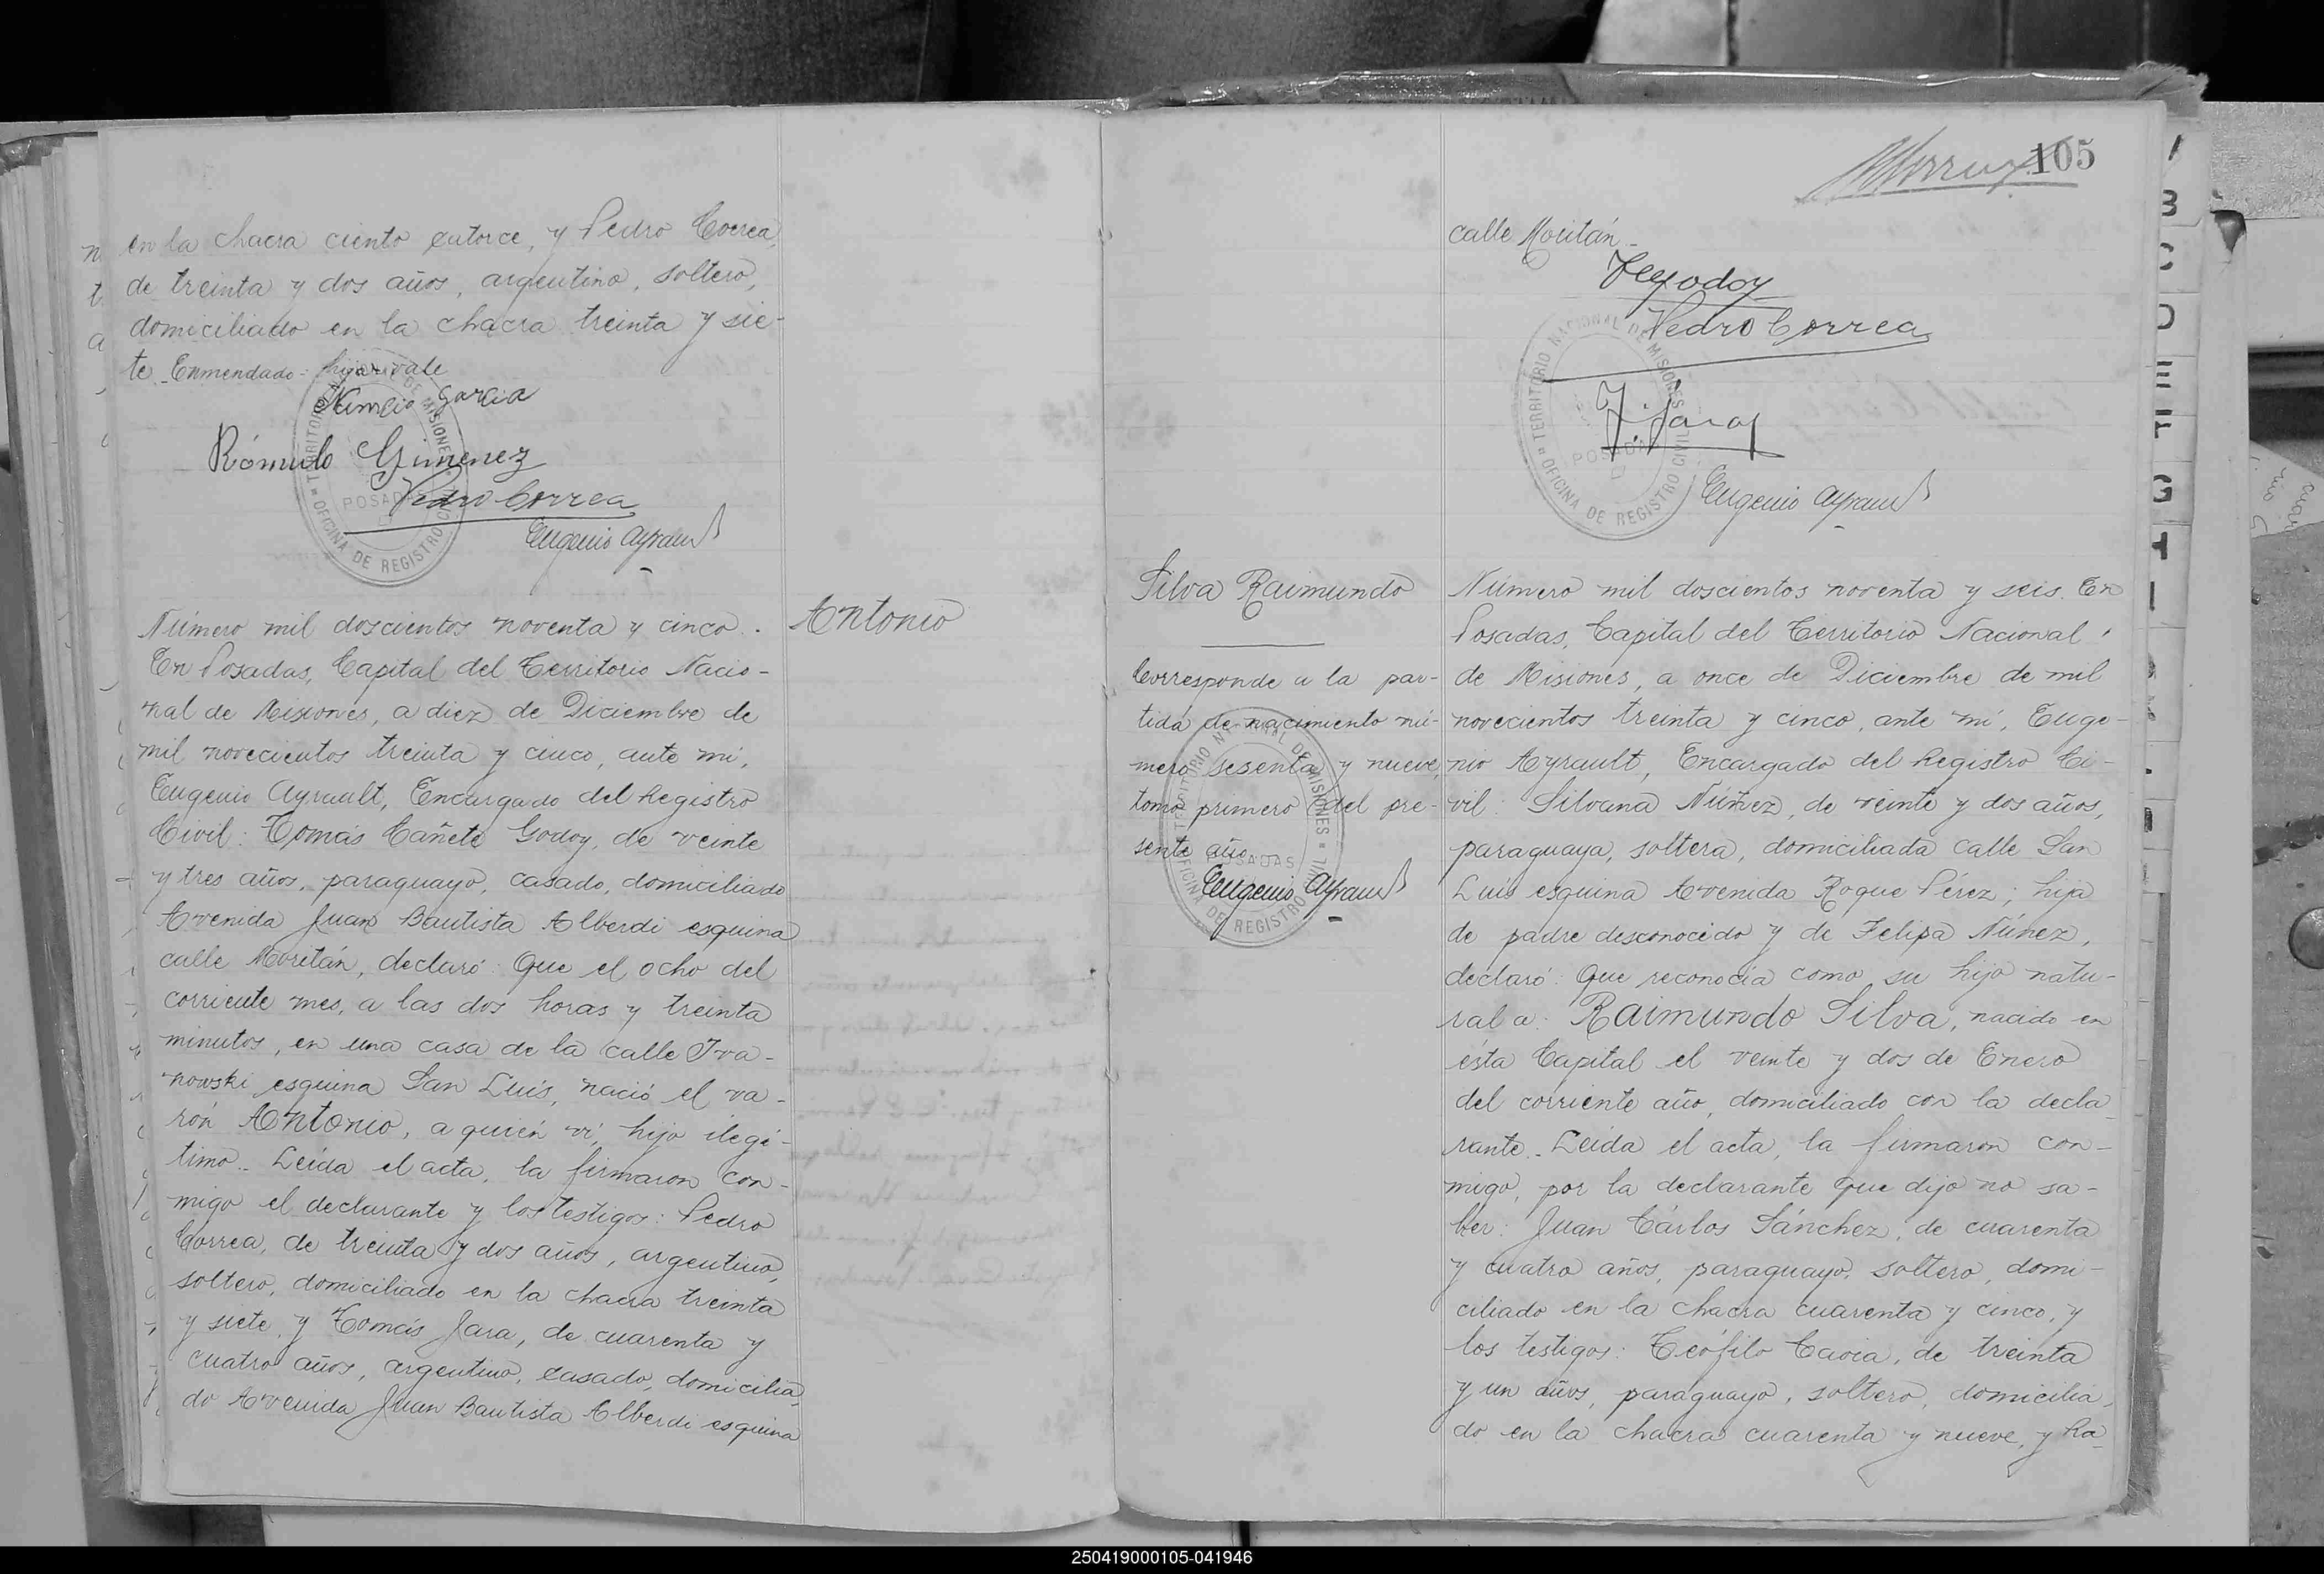 en la chacra ciento catorce, y Pedro Correa,
de treinta y dos años, argentino, soltero,
domiciliado en la chacra treinta y sie-
te. Enmendado: hija: vale
Garcia
Rómulo Gimenez
Pedro Correa
Eugenio Ayrault
TERRITORIO NACIONAL DE MISIONES
POSADAS
OFICINA DE REGISTRO CIVIL
Antonio
Número mil doscientos noventa y cinco.
En Posadas, Capital del Territorio Nacio-
nal de Misiones, a diez de Diciembre de
mil novecientos treinta y cinco, ante mí,
Eugenio Ayrault, Encargado del Registro
Civil: Tomás Cañete Godoy, de veinte
y tres años, paraguayo, casado, domiciliado
Avenida Juan Bautista Alberdi esquina
calle Moritán, declaró: Que el ocho del
corriente mes, a las dos horas y treinta
minutos, en una casa de la calle Iva-
nowski esquina San Luis, nació el va-
rón Antonio, a quién ví, hijo ilegí-
timo. Leída el acta, la firmaron con-
migo el declarante y los testigos: Pedro
Correa, de treinta y dos años, argentino,
soltero, domiciliado en la chacra treinta
y siete, y Tomás Jara, de cuarenta y
cuatro años, argentino, casado, domicilia-
do Avenida Juan Bautista Alberdi esquina
105
calle Moritán.
Pedro Correa
T. Jara
Eugenio Ayrault
TERRITORIO NACIONAL DE MISIONES
POSADAS
OFICINA DE REGISTRO CIVIL
Silva Raimundo
Corresponde a la par-
tida de nacimiento nú-
mero sesenta y nueve,
tomo primero del pre-
sente año.
Eugenio Ayrault
TERRITORIO NACIONAL DE MISIONES
POSADAS
OFICINA DE REGISTRO CIVIL
Número mil doscientos noventa y seis. En
Posadas, Capital del Territorio Nacional
de Misiones, a once de Diciembre de mil
novecientos treinta y cinco, ante mí, Euge-
nio Ayrault, Encargado del Registro Ci-
vil: Silvana Núñez, de veinte y dos años,
paraguaya, soltera, domiciliada calle San
Luis esquina Avenida Roque Pérez; hija
de padre desconocido y de Felipa Núnez,
declaró: Que reconocía como su hijo natu-
ral a: Raimundo Silva, nacido en
ésta Capital el veinte y dos de Enero
del corriente año, domiciliado con la decla-
rante. Leída el acta, la firmaron con-
migo, por la declarante que dijo no sa-
ber: Juan Cárlos Sánchez, de cuarenta
y cuatro años, paraguayo, soltero, domi-
ciliado en la chacra cuarenta y cinco, y
los testigos: Teófilo de treinta
y un años, paraguayo, soltero, domicilia-
do en la chacra cuarenta y nueve, y Ra-
B
C
D
E
F
G
H
I
250419000105-041946